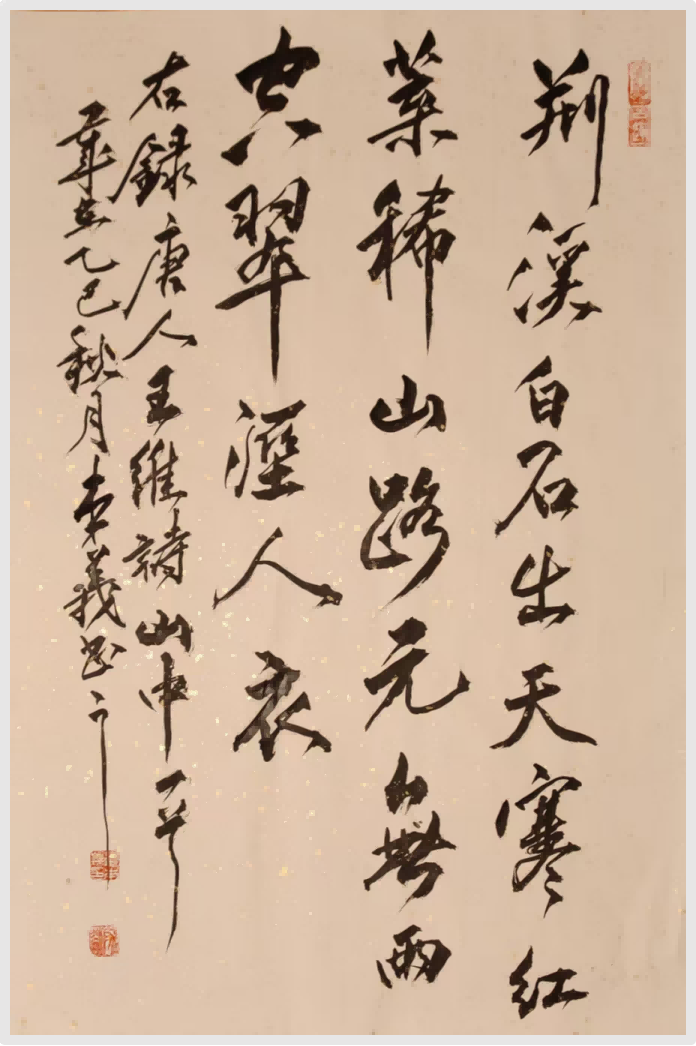 荆溪白石出天寒红
葉稀山路元無雨
空翠溼人衣
右録唐人王維詩山中一首
歲在乙巳秋月李義書